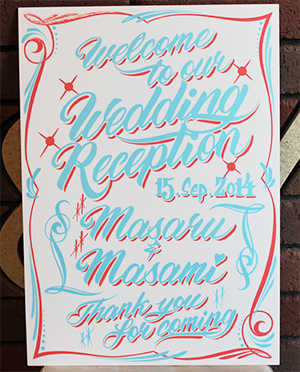 Welcome
to our
Wedding
Reception
15. Sep. 2014
Masaru
&
Masami
Thank you
for coming